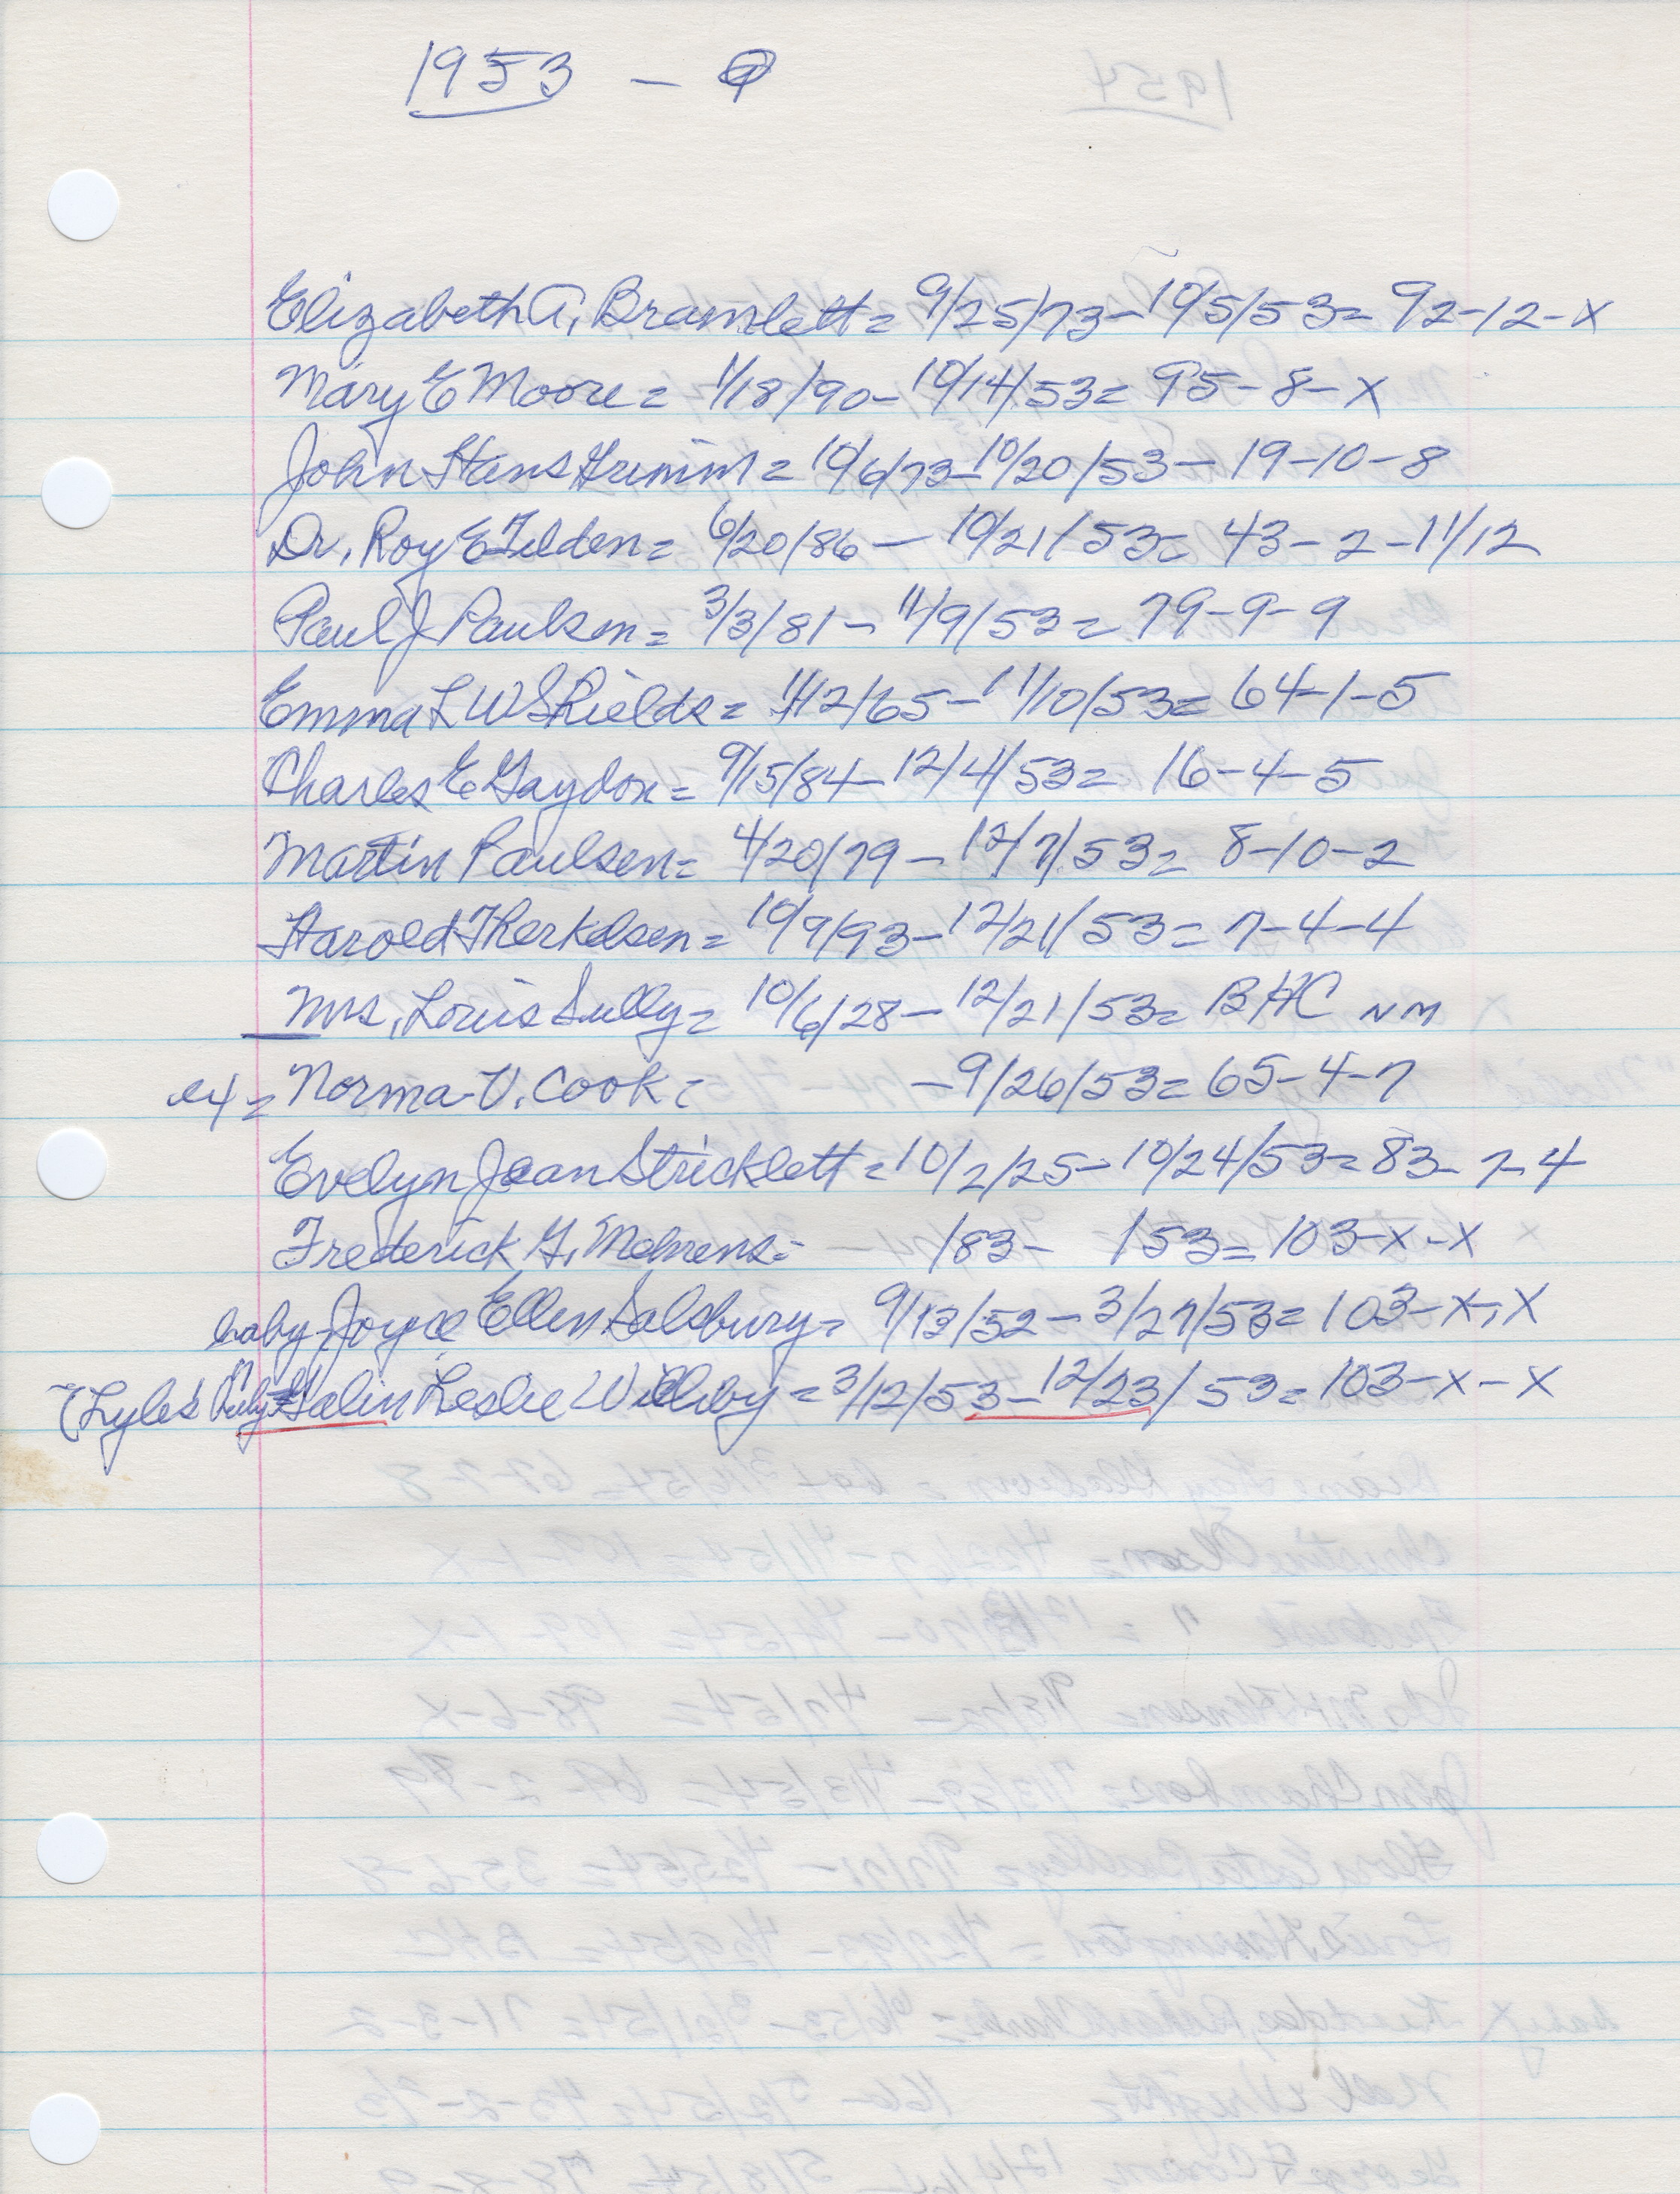 1953 –
Elizabeth A. Bramlett = 9/25/73 – 10/5/53 = 92-12-x
Mary E Moore = 1/18/90 – 10/14/53 = 95-8-x
John Hans Grimm = 10/6/73 – 10/20/53 – 19-10-8
Dr. Roy E Tilden = 6/20/86 – 10/21/53 = 43-2-11/12
Paul J Paulsen = 3/3/81 – 11/9/53 = 79-9-9
Emma L W Shields = 11/12/65 – 11/10/53 = 64-1-5
Charles E Gaydon = 9/15/84 – 12/4/53 = 16-4-5
Martin Paulsen = 4/20/79 – 12/7/53 = 8-10-2
Harold Therkelsen = 10/9/93 – 12/21/53 = 7-4-4
Mrs. Louis Sully = 10/6/28 – 12/21/53 = BHC NM
Norma V. Cook = – 9/26/53 = 65-4-7
Evelyn Jean Stricklett = 10/2/25 – 10/24/53 = 83-7-4
Frederick G. = /83 – /53 = 103-x-x
baby Joyce Ellen Salsbury = 9/13/52 – 3/27/53 = 103-x-x
(Lyle's Galin Leslie = 3/12/53 – 12/23/53 = 103-x-x